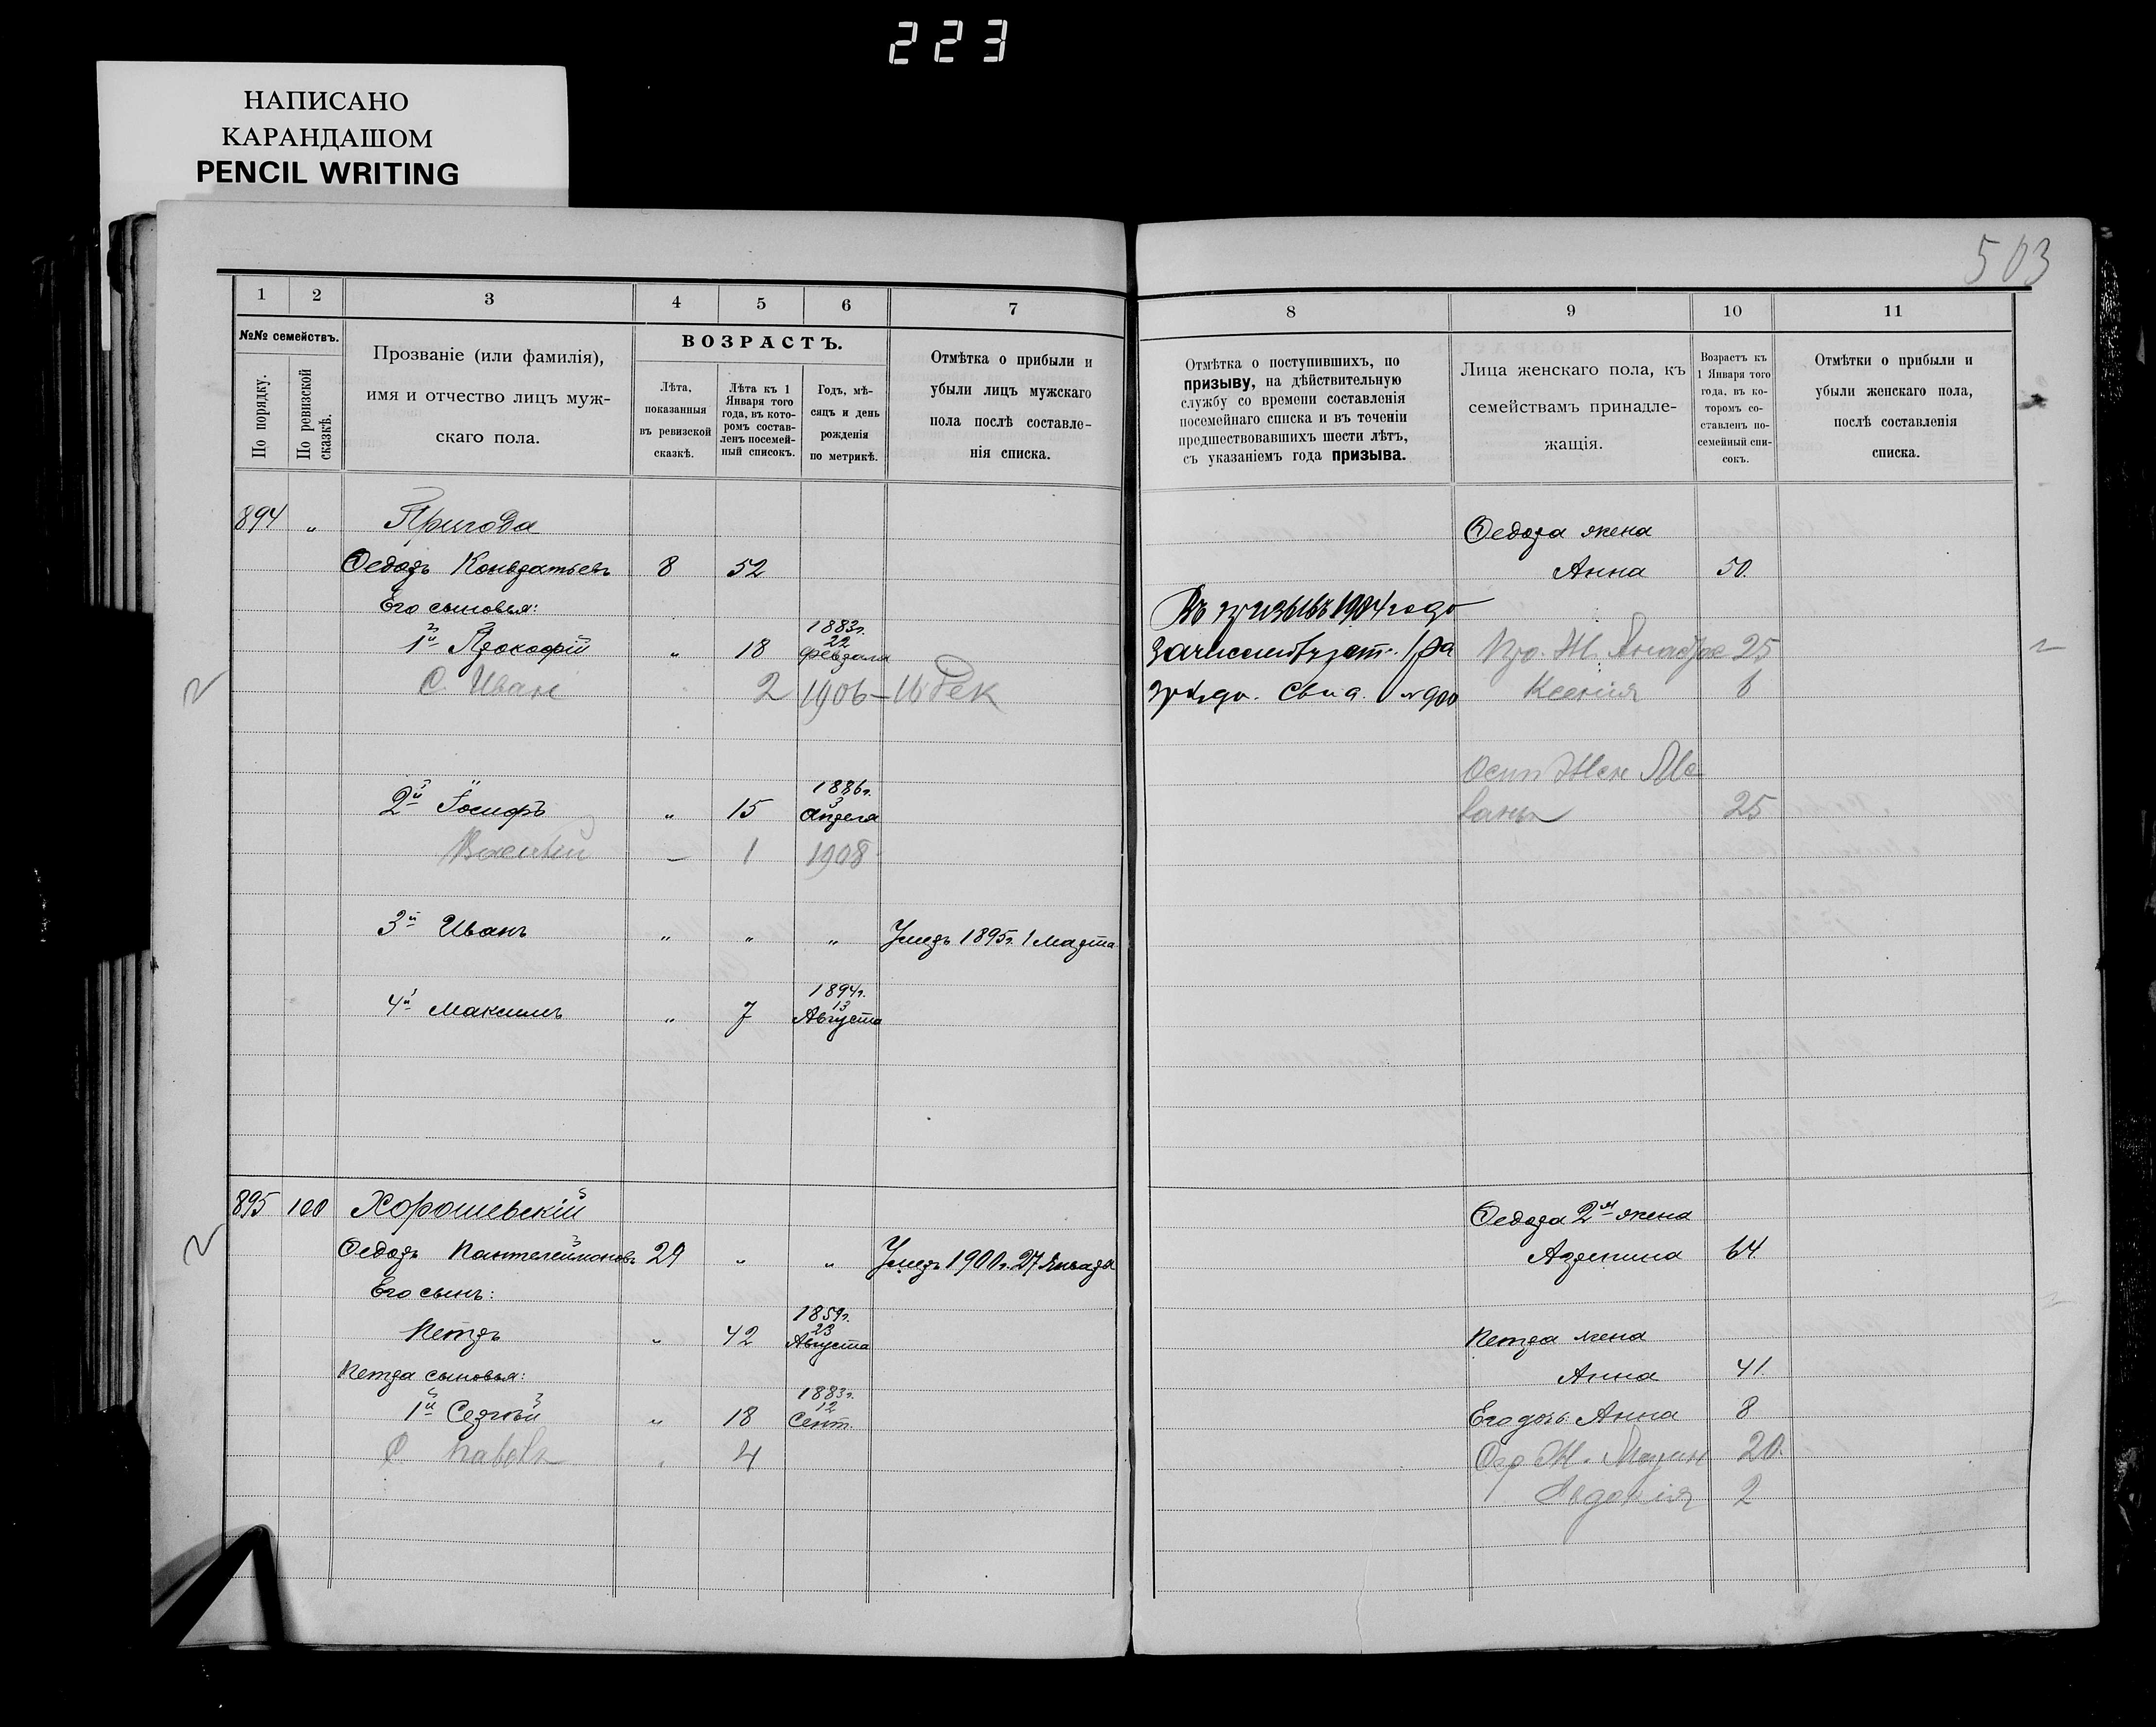 223
НАПИСАНО
КАРАНДАШОМ
PENCIL WRITING
503
1 2 3 4 5 6 7
№№ семействъ.
По порядку.
По ревизской сказкѣ.
Прозваніе (или фамилія),
имя и отчество лицъ муж-
скаго пола.
ВОЗРАСТЪ.
Лѣта,
показанныя
въ ревизской
сказкѣ.
Лѣта къ 1
Января того
года, въ кото-
ромъ состав-
ленъ посемей-
ный списокъ.
Годъ, мѣ-
сяцъ и день
рожденія
по метрикѣ.
Отмѣтка о прибыли и
убыли лицъ мужскаго
пола послѣ составле-
нія списка.
894 „ Пригода
Ѳедоръ Кондратьевъ 8 52
Его сыновья:
1883г.
22
1й Прокофій „ 18 февраля
С. Иван „ 2 1906 – 16 Дек
1886г.
3
2й Іосифъ „ 15 Апреля
– 1 1908
3й Иванъ „ „ „ Умеръ 1895г. 1 Марта
1894г.
13
4й Максимъ „ 7 Августа
895 100 Хорошевскій
Ѳедоръ Пантелеймоновъ 29 „ „ Умеръ 1900г. 27 Января
Его сынъ:
1859г.
23
Петръ „ 42 Августа
Петра сыновья:
1883г.
12
1й Сергѣй „ 18 Сент.
С Павелъ „ 4
8 9 10 11
Отмѣтка о поступившихъ, по
призыву, на дѣйствительную
службу со времени составленія
посемейнаго списка и въ теченіи
предшествовавшихъ шести лѣтъ,
съ указаніемъ года призыва.
Лица женскаго пола, къ
семействамъ принадле-
жащія.
Возрастъ къ
1 Января того
года, въ ко-
торомъ со-
ставленъ по-
семейный спи-
сокъ.
Отмѣтки о прибыли и
убыли женскаго пола,
послѣ составленія
списка.
Ѳедора жена
Анна 50.
Въ призывъ 1904 года
Про. Ж. 25
свид. № 900 Ксенія 6
Осип Жен
25
Ѳедора 2я жена
Агрепина 64
Петра жена
Анна 41.
Его дочь: Анна 8
Сер Ж. 20.
Авдокія 2